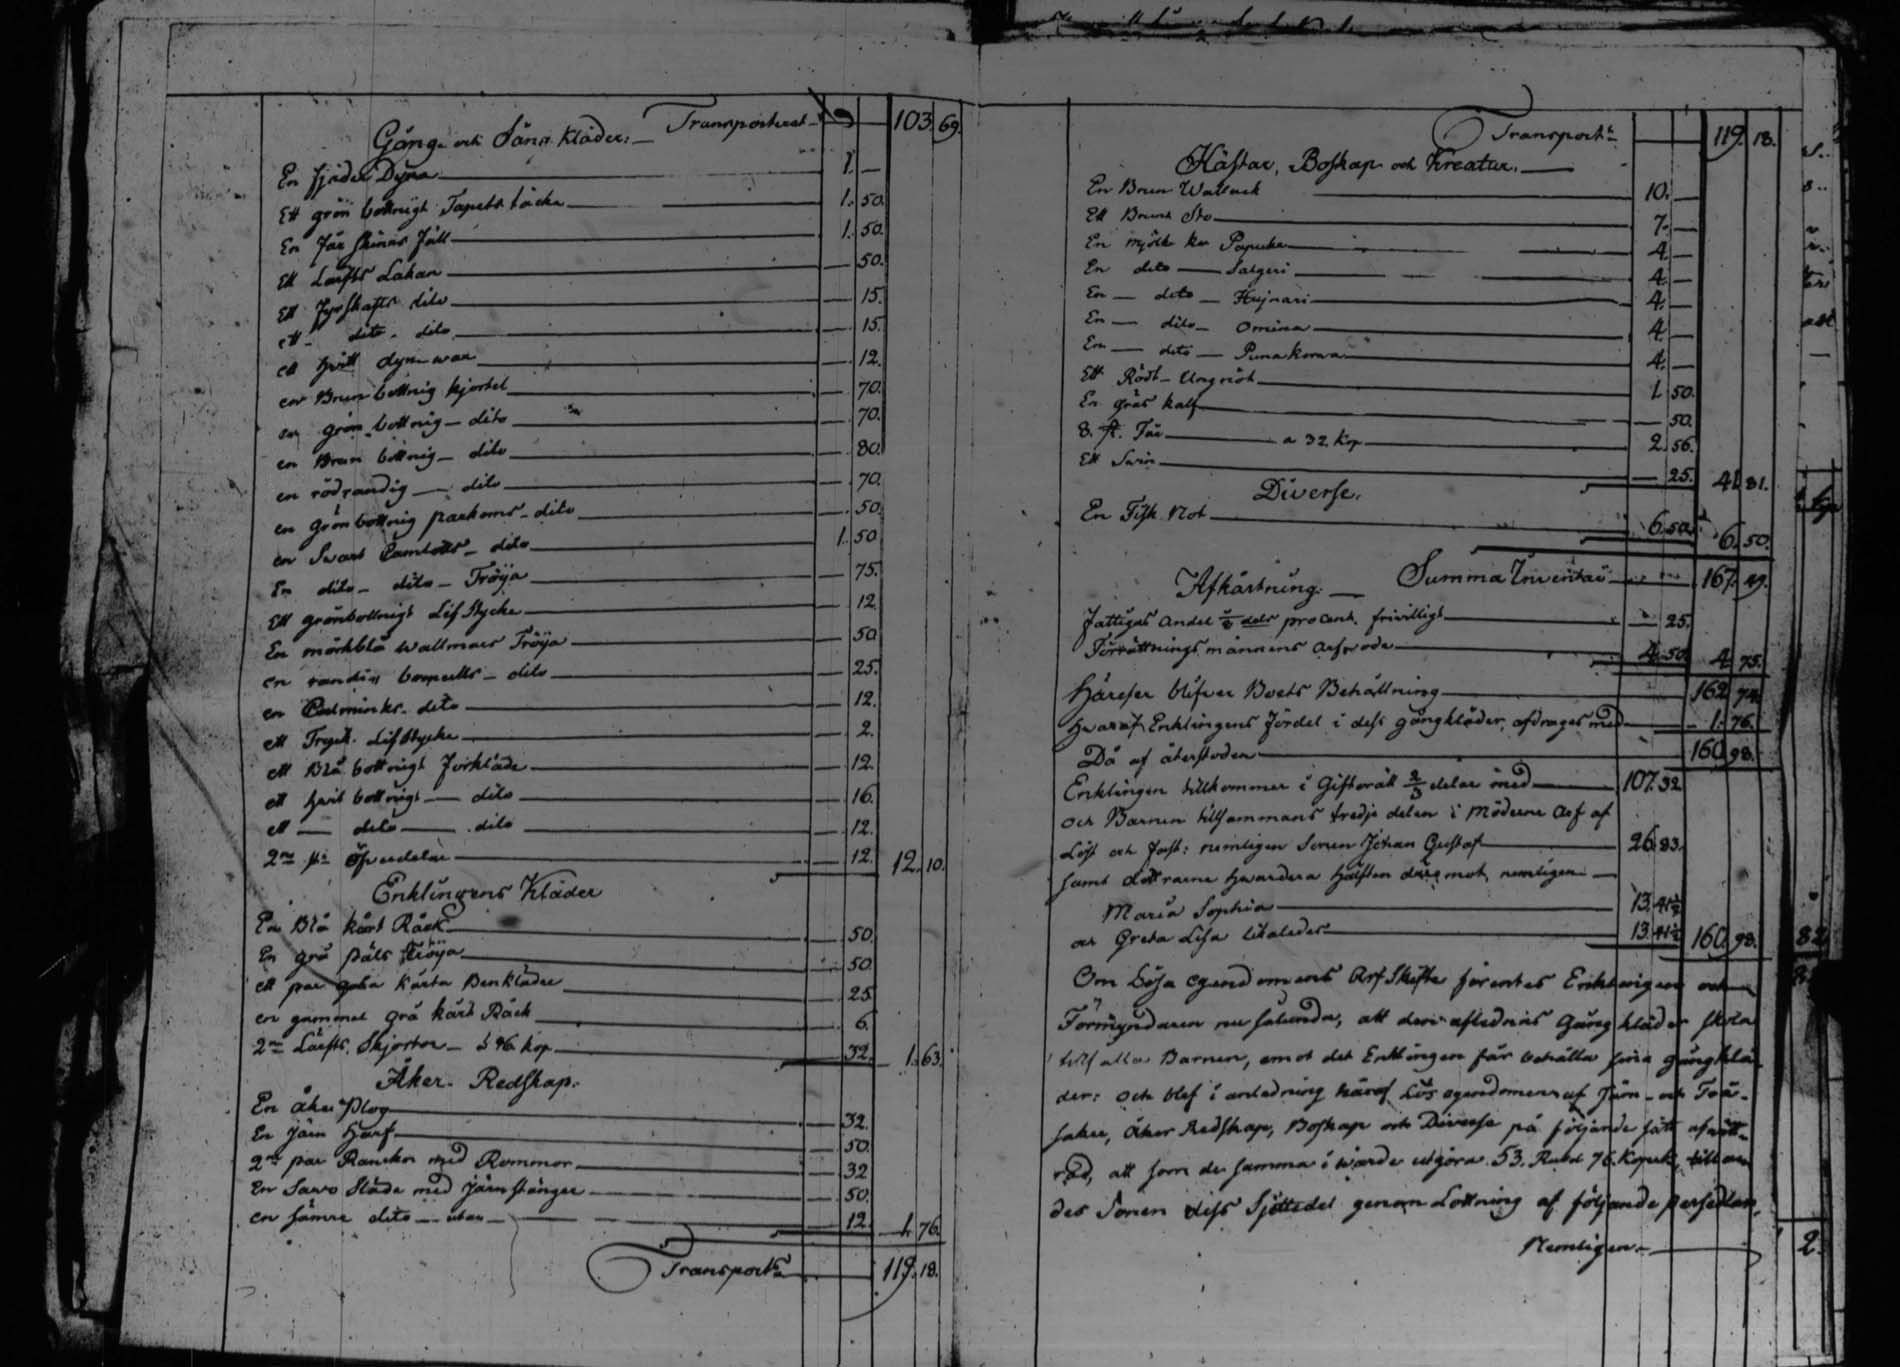 Transporterat 103. 69.
Gång- och Säng Kläder:
En fjäder Dyna 1. —
Ett grön bottnigt Tapets täcke 1. 50.
En Får skinns Fäll 1. 50.
Ett Lärfts Lakan — 50.
Ett Fyrskafts dito — 15.
ett dito dito — 15.
ett hvitt dyn waar — 12.
en Brun bottnig kjortel — 70.
en grön bottnig dito — 70.
en Brun bottnig dito — 80.
en rödrandig dito — 70.
en grön bottnig parkoms dito — 50.
en Svart Camlotts dito 1. 50
En dito dito Tröija — 75.
Ett grönbottnigt Lifstycke — 12
En mörkblå wallmars Tröija — 50
en randig bomulls dito — 25.
en dito — 12.
ett Tryck. Lifstycke — 2.
ett Blå bottnigt Förkläde — 12.
ett hvit bottnigt dito — 16.
ett dito dito — 12.
2ne st: öfverdelar — 12. 12. 10.
Enklingens Kläder
En Blå kårt Råck — 50.
En grå päls Tröija — 50.
ett par gula kårta Benkläder — 25
en gammal grå kårt Råck — 6.
2ne Lärfts Skjortor — á 16 kop — 32. 1. 63.
Åker Redskap.
En åker Plog 32.
En järn Harf 50.
2ne par Ranckor med Rommor 32
En Sawo Släde med järnstänger 50.
en sämre dito utan 12. 1. 76.
Transport 119. 18.
Transport 119. 18.
Hästar, Boskap och Kreatur.
En Brun Wallack 10. —
Ett Brunt Sto 7. —
En mjölk ko Papuka 4. —
En dito Salgeri 4. —
En dito Hujnari 4. —
En dito Omina 4. —
En dito Punakorva 4. —
Ett Rödt Ungnöt 1. 50.
En grås kalf — 50.
8. st. Får a 32. kop 2. 56.
Ett Swin — 25. 41. 81.
Diverse.
En Fisk Not 6. 50. 6. 50.
Summa Inventarii 167. 49.
Afkårtning:
Fattigas andel dels procent. frivilligt — 25.
Förrättnings männens arfvode 4. 50 4. 75.
Härefter blifver Boets Behållning 162. 74.
Hvaraf Enklingens Fördel i dess gångkläder, afdrages med 1. 76.
Då af återstoden 160. 98.
Enklingen tillkommer i Giftorätt 2/3 delar med 107. 32.
och Barnen tillsammans tredje delen i Möderne Arf af
Löst och fast: nemligen Sonen Johan Gustaf 26. 83.
samt döttrarne hwardera Hälften däremot, nemligen
Maria Sophia 13. 41½
och Greta Lisa likaledes 13. 41½ 160. 98.
Om Lösa egendomens Arf Skifte förentes Enklingen och
Förmyndaren nu sålunda, att den aflednas Gång kläder skola
tillfalla Barnen, emot det Enklingen får behålla sina gångklä-
der: och blef i anledning häraf Lös egendomen af Järn- och Trä-
saker, Åker Redskap, Boskap och Diverse på följande sätt
att som de samma i wärde utgöra 53. Rubel 76. Kopek,
des Sonen dess Sjettedel genom Lottning af följande persedlar,
Nemligen.